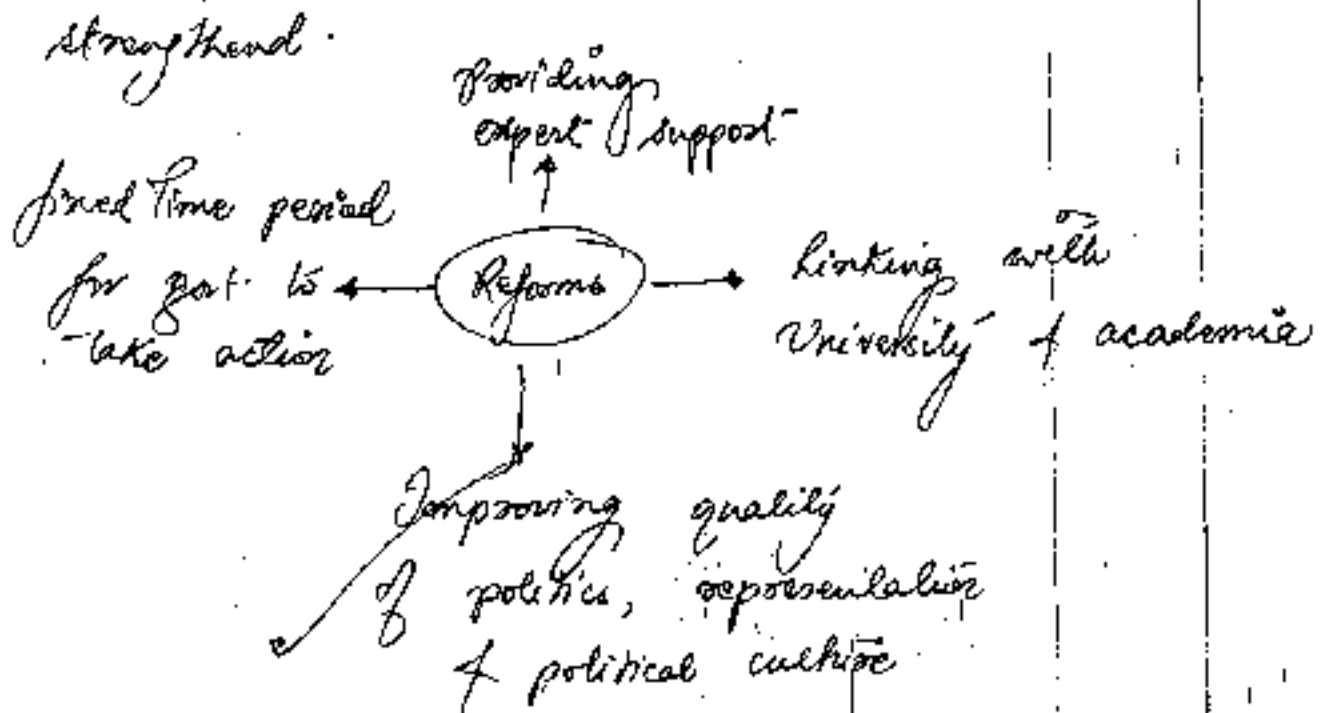 strengthend.
providing
expert support
fixed Time period
for govt. to
take action
Reforms
Linking with
University & academia
Improving quality
of politics, representation
& political culture